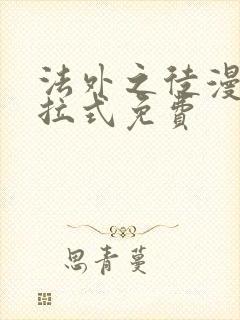 法外之徒漫
拉式免費
思青蔓